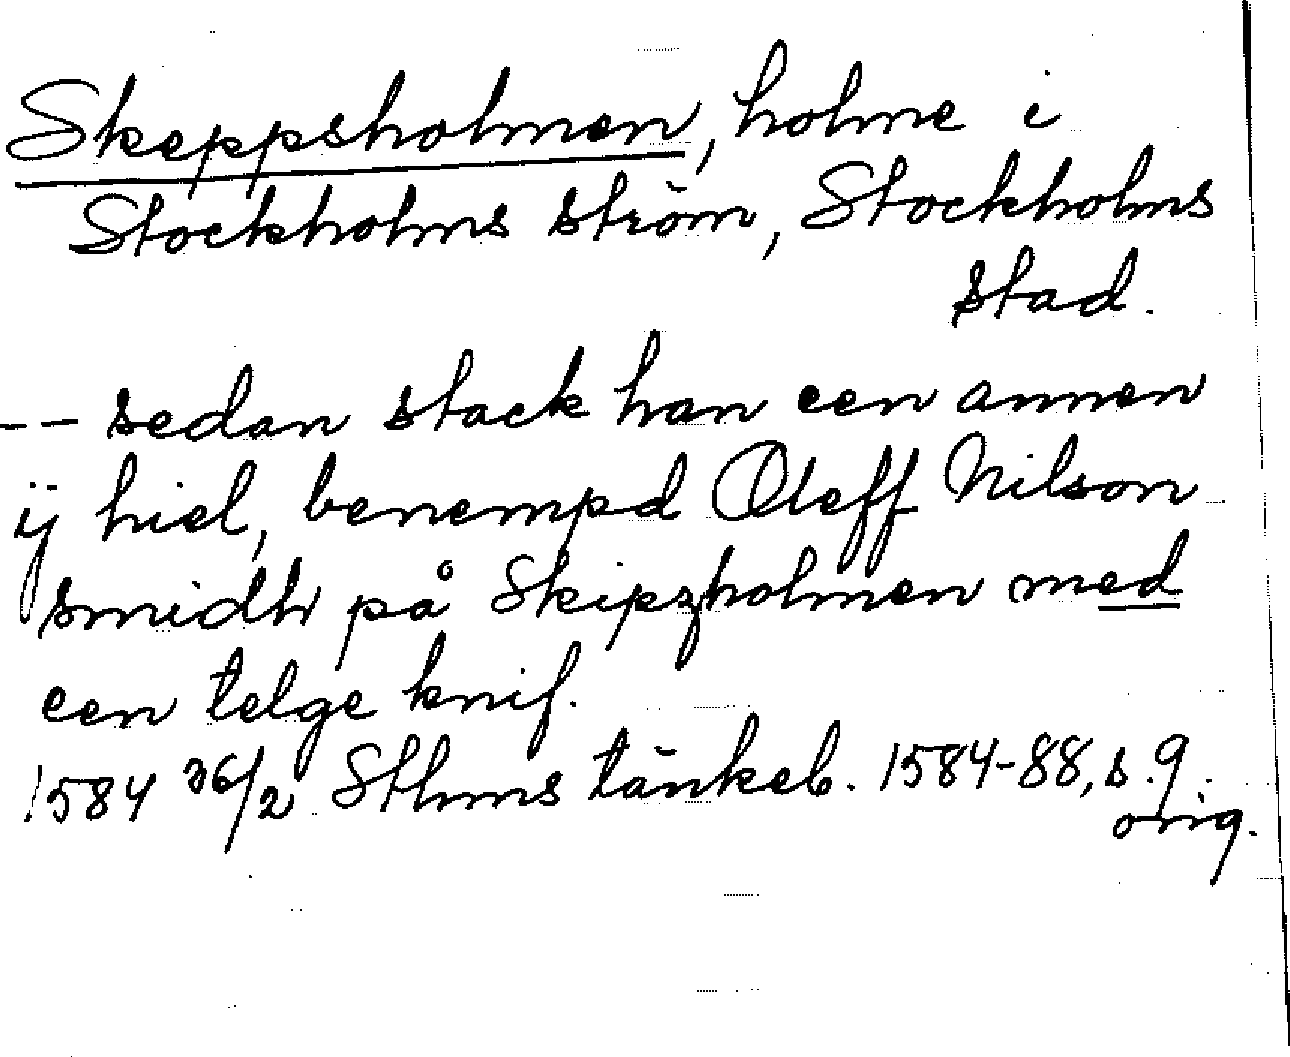 Skeppsholmen, holme i
Stockholms ström, Stockholms
stad.
-- sedan stack han een annen
ÿ hiel, benempd Oleff Nilson
smidh på Skipzholmen med
een telge knif.
1584 26/2 Sthms tänkeb. 1584-88, s. 9.
orig.